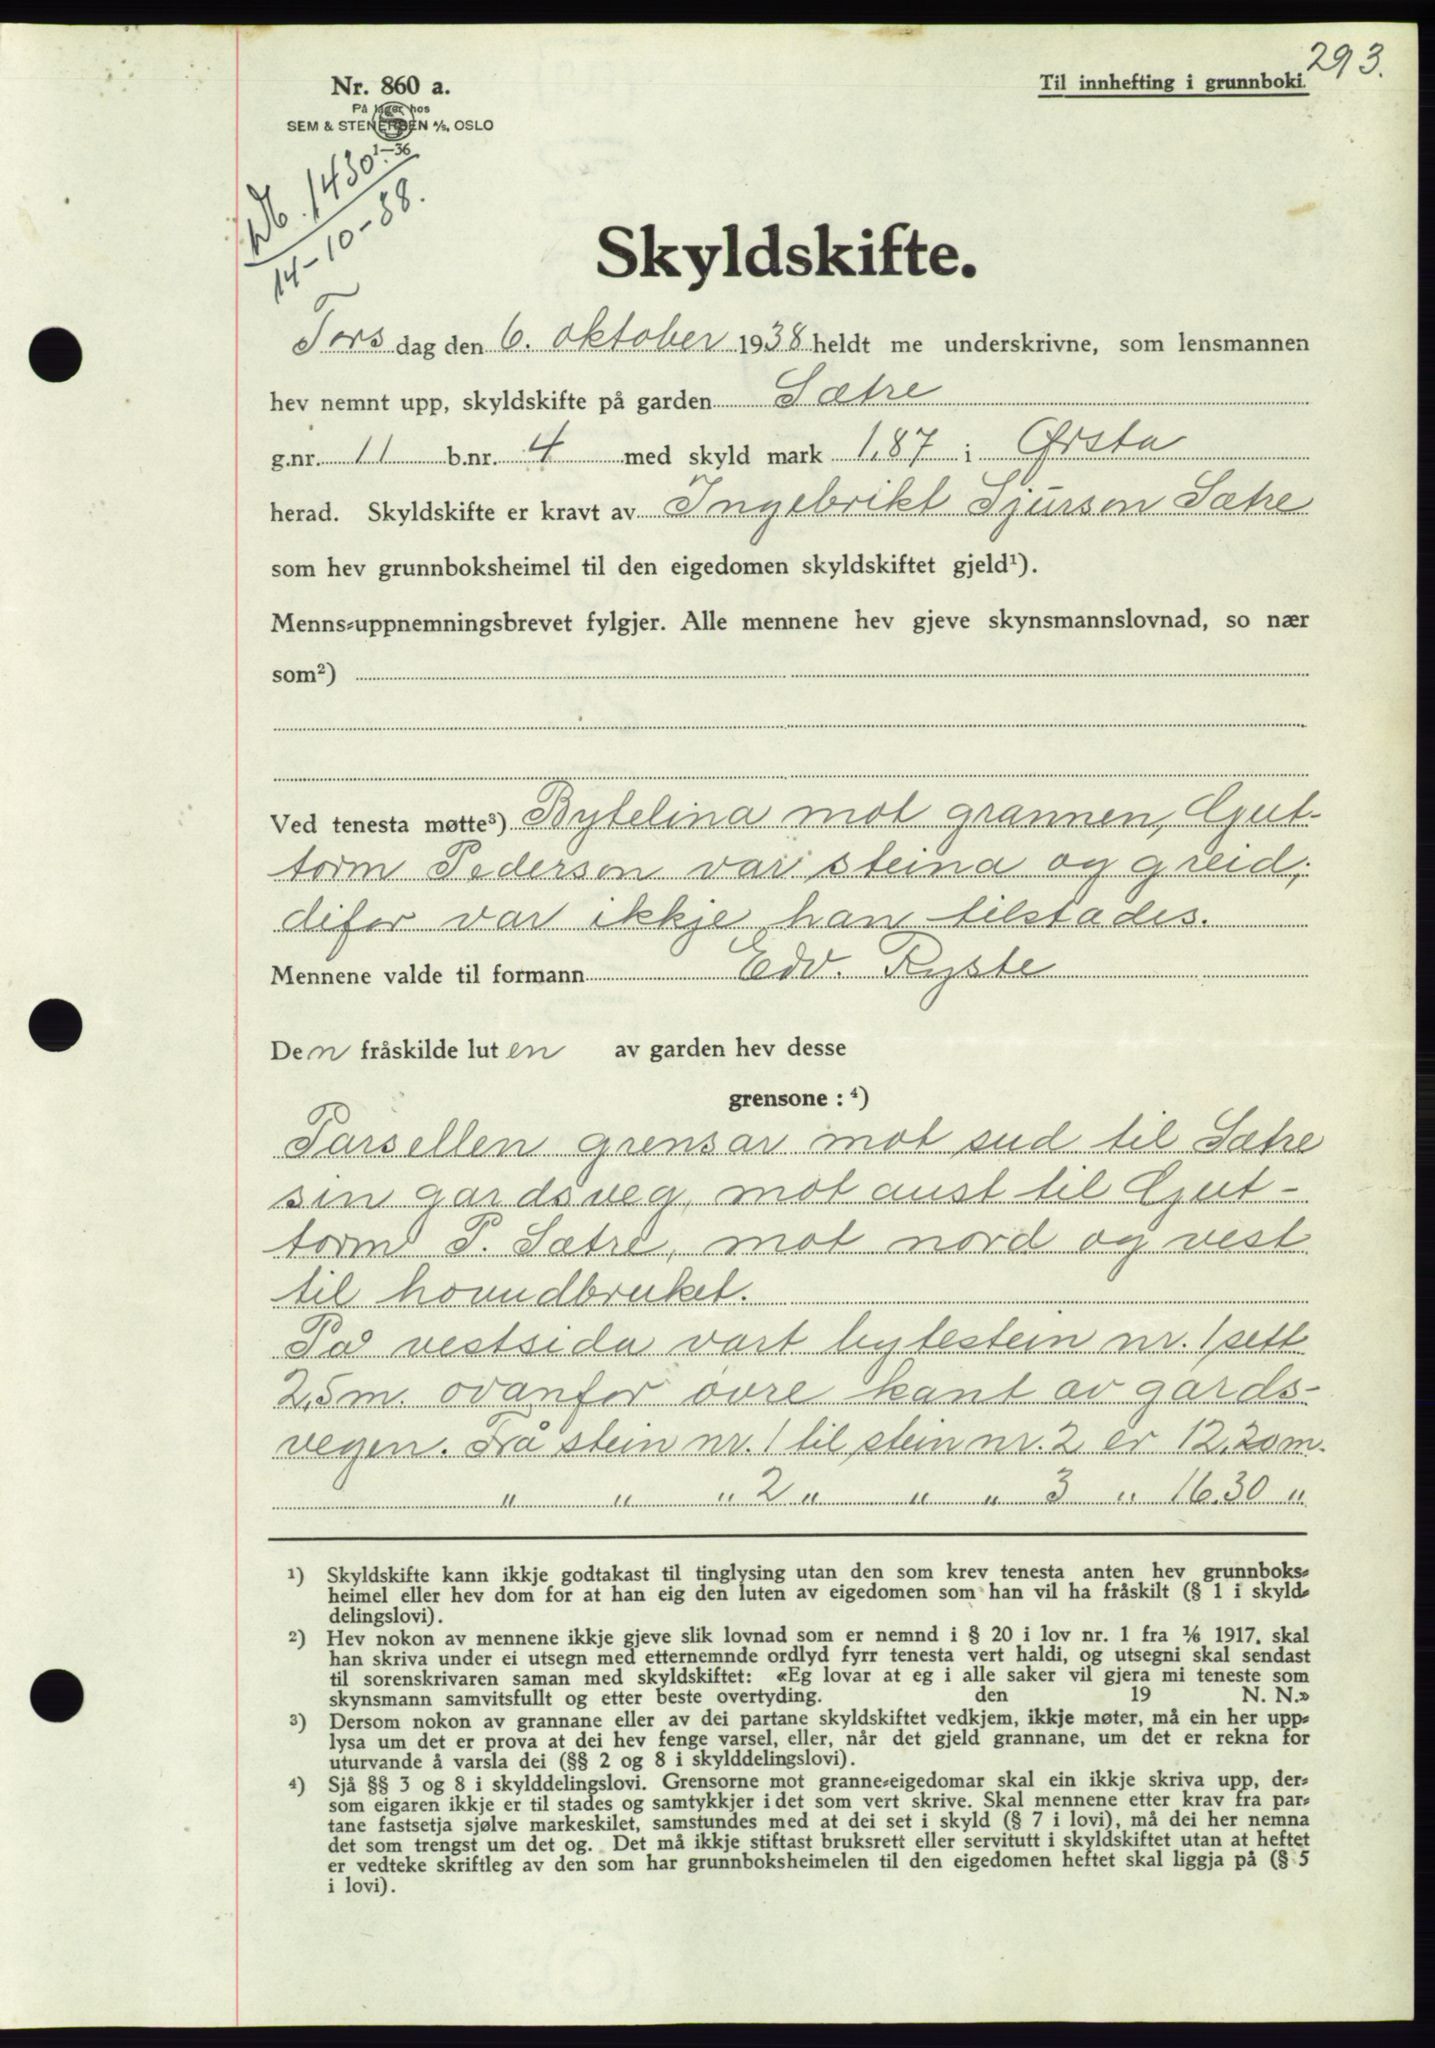 293.
Nr. 860 a.
På lager hos
SEM & STENERSEN A/S, OSLO
1—36
Til innhefting i grunnboki.
Db. 1430.
14-10-38.
Skyldskifte.
Tors dag den 6. oktober 1938 heldt me underskrivne, som lensmannen
hev nemnt upp, skyldskifte på garden Sætre
g.nr. 11 b.nr. 4 med skyld mark 1,87 i Ørsta
herad. Skyldskifte er kravt av Ingebrikt Sjurson Sætre
som hev grunnboksheimel til den eigedomen skyldskiftet gjeld¹).
Menns-uppnemningsbrevet fylgjer. Alle mennene hev gjeve skynsmannslovnad, so nær
som²)
Ved tenesta møtte³) Bytelina mot grannen, Gjut-
torm Pederson var steina og greid;
difor var ikkje han tilstades.
Mennene valde til formann Edv. Ryste
Den fråskilde luten av garden hev desse
grensone : ⁴)
Parsellen grensar mot sud til Sætre
sin gardsveg, mot aust til Gjut-
torm P. Sætre, mot nord og vest
til hovudbruket.
På vestsida vart bytestein nr. 1 sett
2,5m. ovanfor øvre kant av gards-
vegen. Frå stein nr. 1 til stein nr. 2 er 12,20m.
" " " 2 " " " 3 " 16.30 "
¹) Skyldskifte kann ikkje godtakast til tinglysing utan den som krev tenesta anten hev grunnboks-
heimel eller hev dom for at han eig den luten av eigedomen som han vil ha fråskilt (§ 1 i skyld-
delingslovi).
²) Hev nokon av mennene ikkje gjeve slik lovnad som er nemnd i § 20 i lov nr. 1 fra 1/6 1917, skal
han skriva under ei utsegn med etternemnde ordlyd fyrr tenesta vert haldi, og utsegni skal sendast
til sorenskrivaren saman med skyldskiftet: «Eg lovar at eg i alle saker vil gjera mi teneste som
skynsmann samvitsfullt og etter beste overtyding. den 19 N. N.»
³) Dersom nokon av grannane eller av dei partane skyldskiftet vedkjem, ikkje møter, må ein her upp-
lysa um det er prova at dei hev fenge varsel, eller, når det gjeld grannane, um det er rekna for
uturvande å varsla dei (§§ 2 og 8 i skylddelingslovi).
⁴) Sjå §§ 3 og 8 i skylddelingslovi. Grensorne mot granne-eigedomar skal ein ikkje skriva upp, der-
som eigaren ikkje er til stades og samtykkjer i det som vert skrive. Skal mennene etter krav fra par-
tane fastsetja sjølve markeskilet, samstundes med at dei set i skyld (§ 7 i lovi), må dei her nemna
det som trengst um det og. Det må ikkje stiftast bruksrett eller servitutt i skyldskiftet utan at heftet
er vedteke skriftleg av den som har grunnboksheimelen til den eigedomen heftet skal liggja på (§ 5
i lovi).